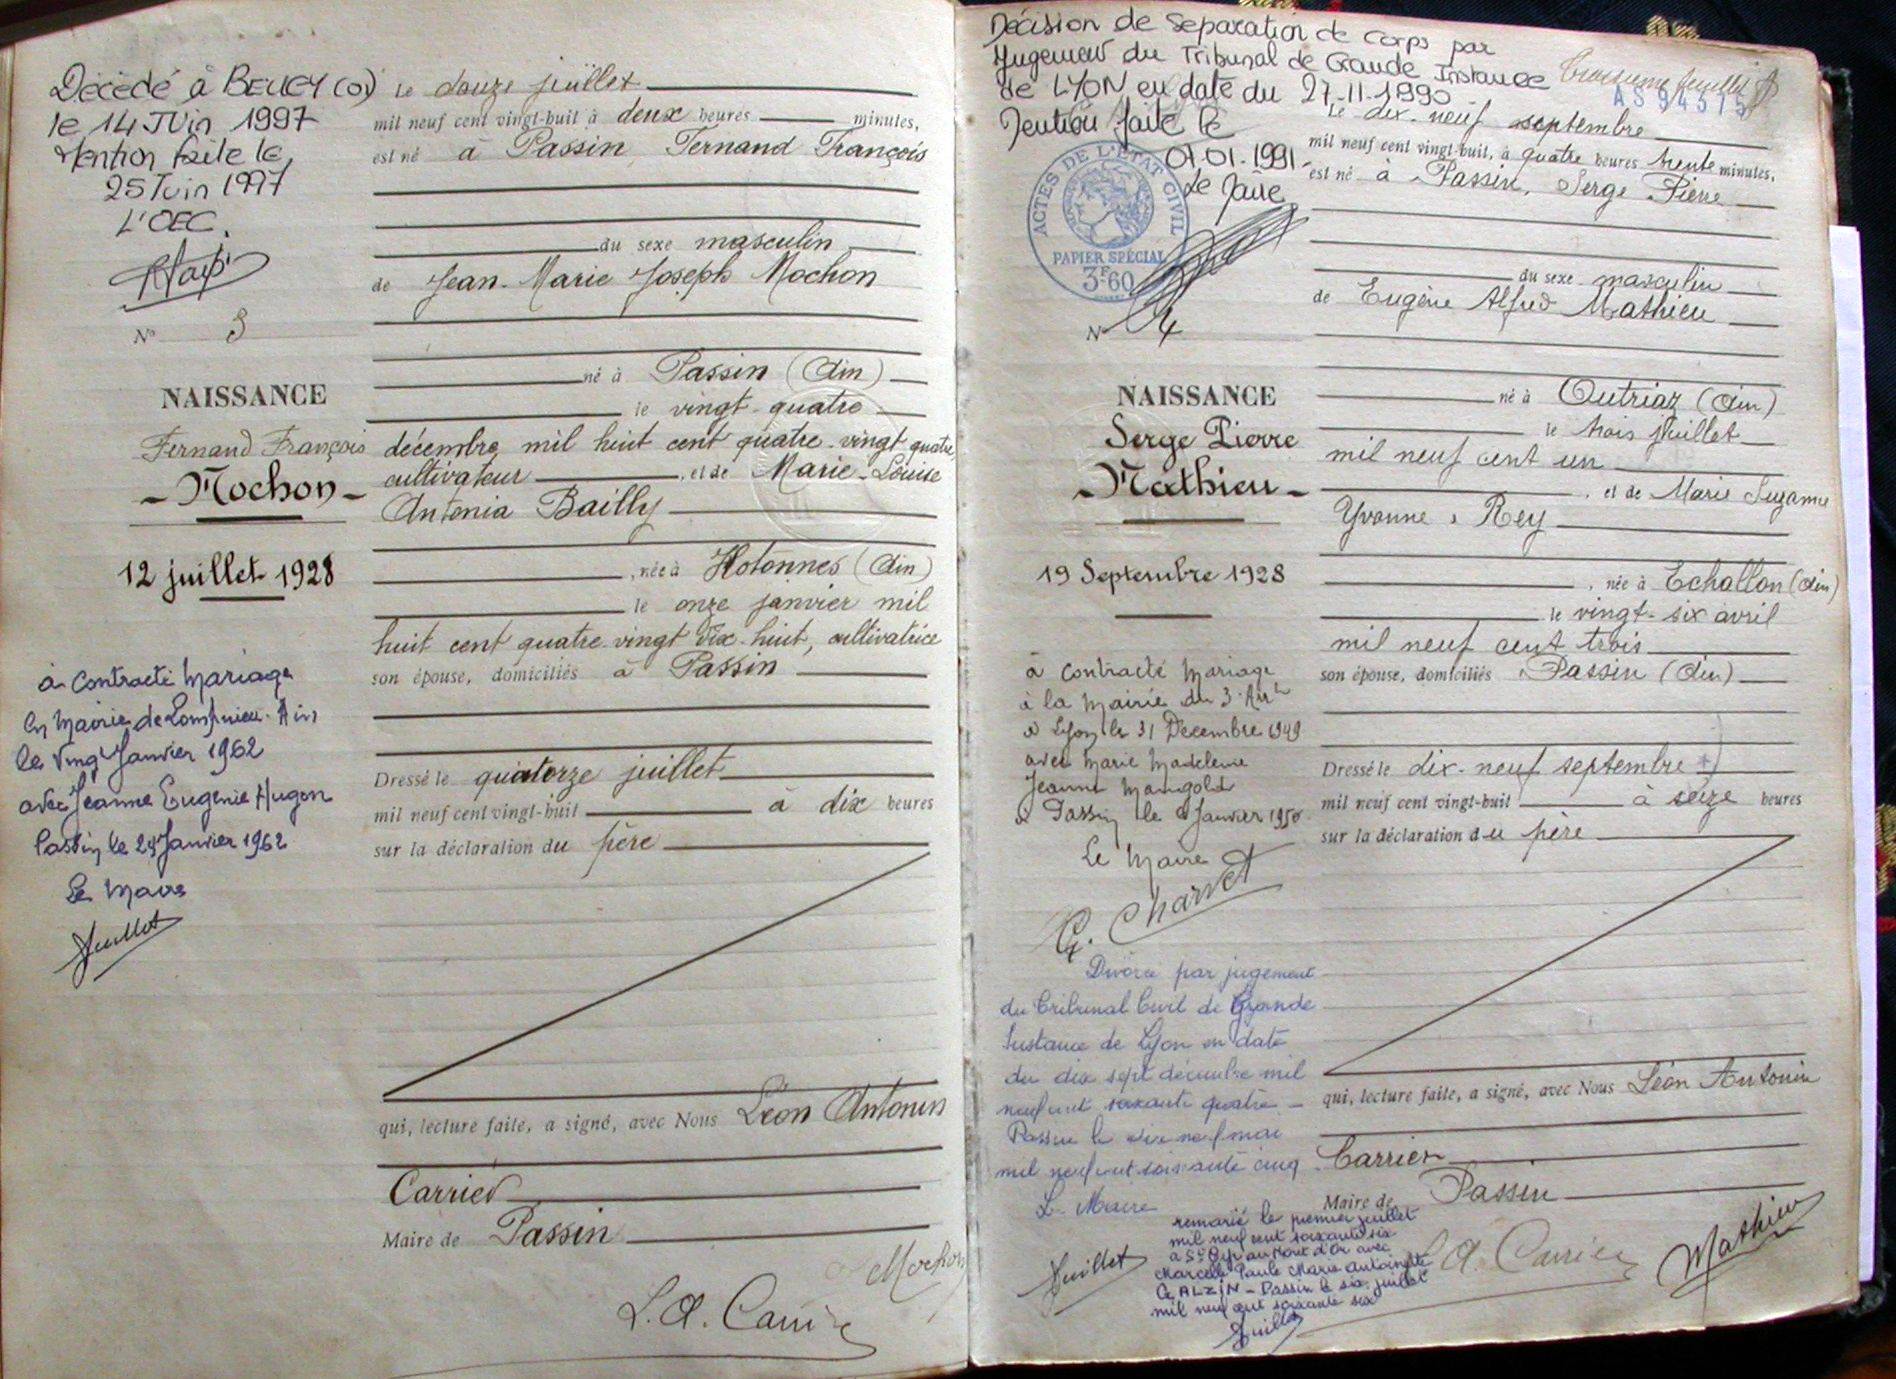 Décédé à BELLEY (01)
le 14 Juin 1997
Mention faite le,
25 Juin 1997
L'OEC.
N° 3
NAISSANCE
Fernand François
- Mochon -
12 juillet 1928
à contracté mariage
en Mairie de Lompnieu. Ain
le vingt Janvier 1962
avec Jeanne Eugenie Hugon
Passin le 24 Janvier 1962
Le Maire
Juillet
Le douze juillet
mil neuf cent vingt-huit à deux heures minutes,
est né à Passin Fernand François
du sexe masculin
de Jean-Marie Joseph Mochon
né à Passin (Ain)
le vingt-quatre
décembre mil huit cent quatre-vingt quatre,
cultivateur , et de Marie-Louise
Antonia Bailly
, née à Hotonnes (Ain)
le onze janvier mil
huit cent quatre-vingt dix-huit, cultivatrice
son épouse, domiciliés à Passin
Dressé le quatorze juillet
mil neuf cent vingt-huit à dix heures
sur la déclaration du père
qui, lecture faite, a signé, avec Nous Léon Antonin
Carrier
Maire de Passin
Mochon
L. A. Carrier
Décision de Separation de Corps par
Jugement du Tribunal de Grande Instance
de LYON en date du 27-11-1990
Mention faite le
01.01.1991.
Le Maire
Troisième feuillet
AS 94515
ACTES DE L'ÉTAT CIVIL
PAPIER SPÉCIAL
3F60
N° 4
NAISSANCE
Serge Pierre
- Mathieu -
19 Septembre 1928
à contracté mariage
à la mairie du 3e Arrt
à Lyon le 31 Décembre 1949
avec Marie Madeleine
Jeanne Mangold
à Passin le Janvier 1950
Le Maire
G. Charvet
Divorcé par jugement
du Tribunal Civil de Grande
Instance de Lyon en date
du dix sept décembre mil
neuf cent soixante quatre -
Passin le dix neuf mai
mil neuf cent soixante cinq
Le Maire
Juillet
Le dix-neuf septembre
mil neuf cent vingt-huit, à quatre heures trente minutes,
est né à Passin, Serge Pierre
du sexe masculin
de Eugène Alfred Mathieu
né à Outriaz (Ain)
le trois juillet
mil neuf cent un
, et de Marie Suzanne
Yvonne Rey
, née à Echallon (Ain)
le vingt-six avril
mil neuf cent trois
son épouse, domiciliés à Passin (Ain)
Dressé le dix-neuf septembre
mil neuf cent vingt-huit à seize heures
sur la déclaration du père
qui, lecture faite, a signé, avec Nous Léon Antonin
Carrier
Maire de Passin
remarié le premier juillet
mil neuf cent soixante six
à St Cyr au Mont d'Or avec
Marcelle Paule Marie Antoinette
GALZIN - Passin le six juillet
mil neuf cent soixante six
Juillet
L. A. Carrier
Mathieu